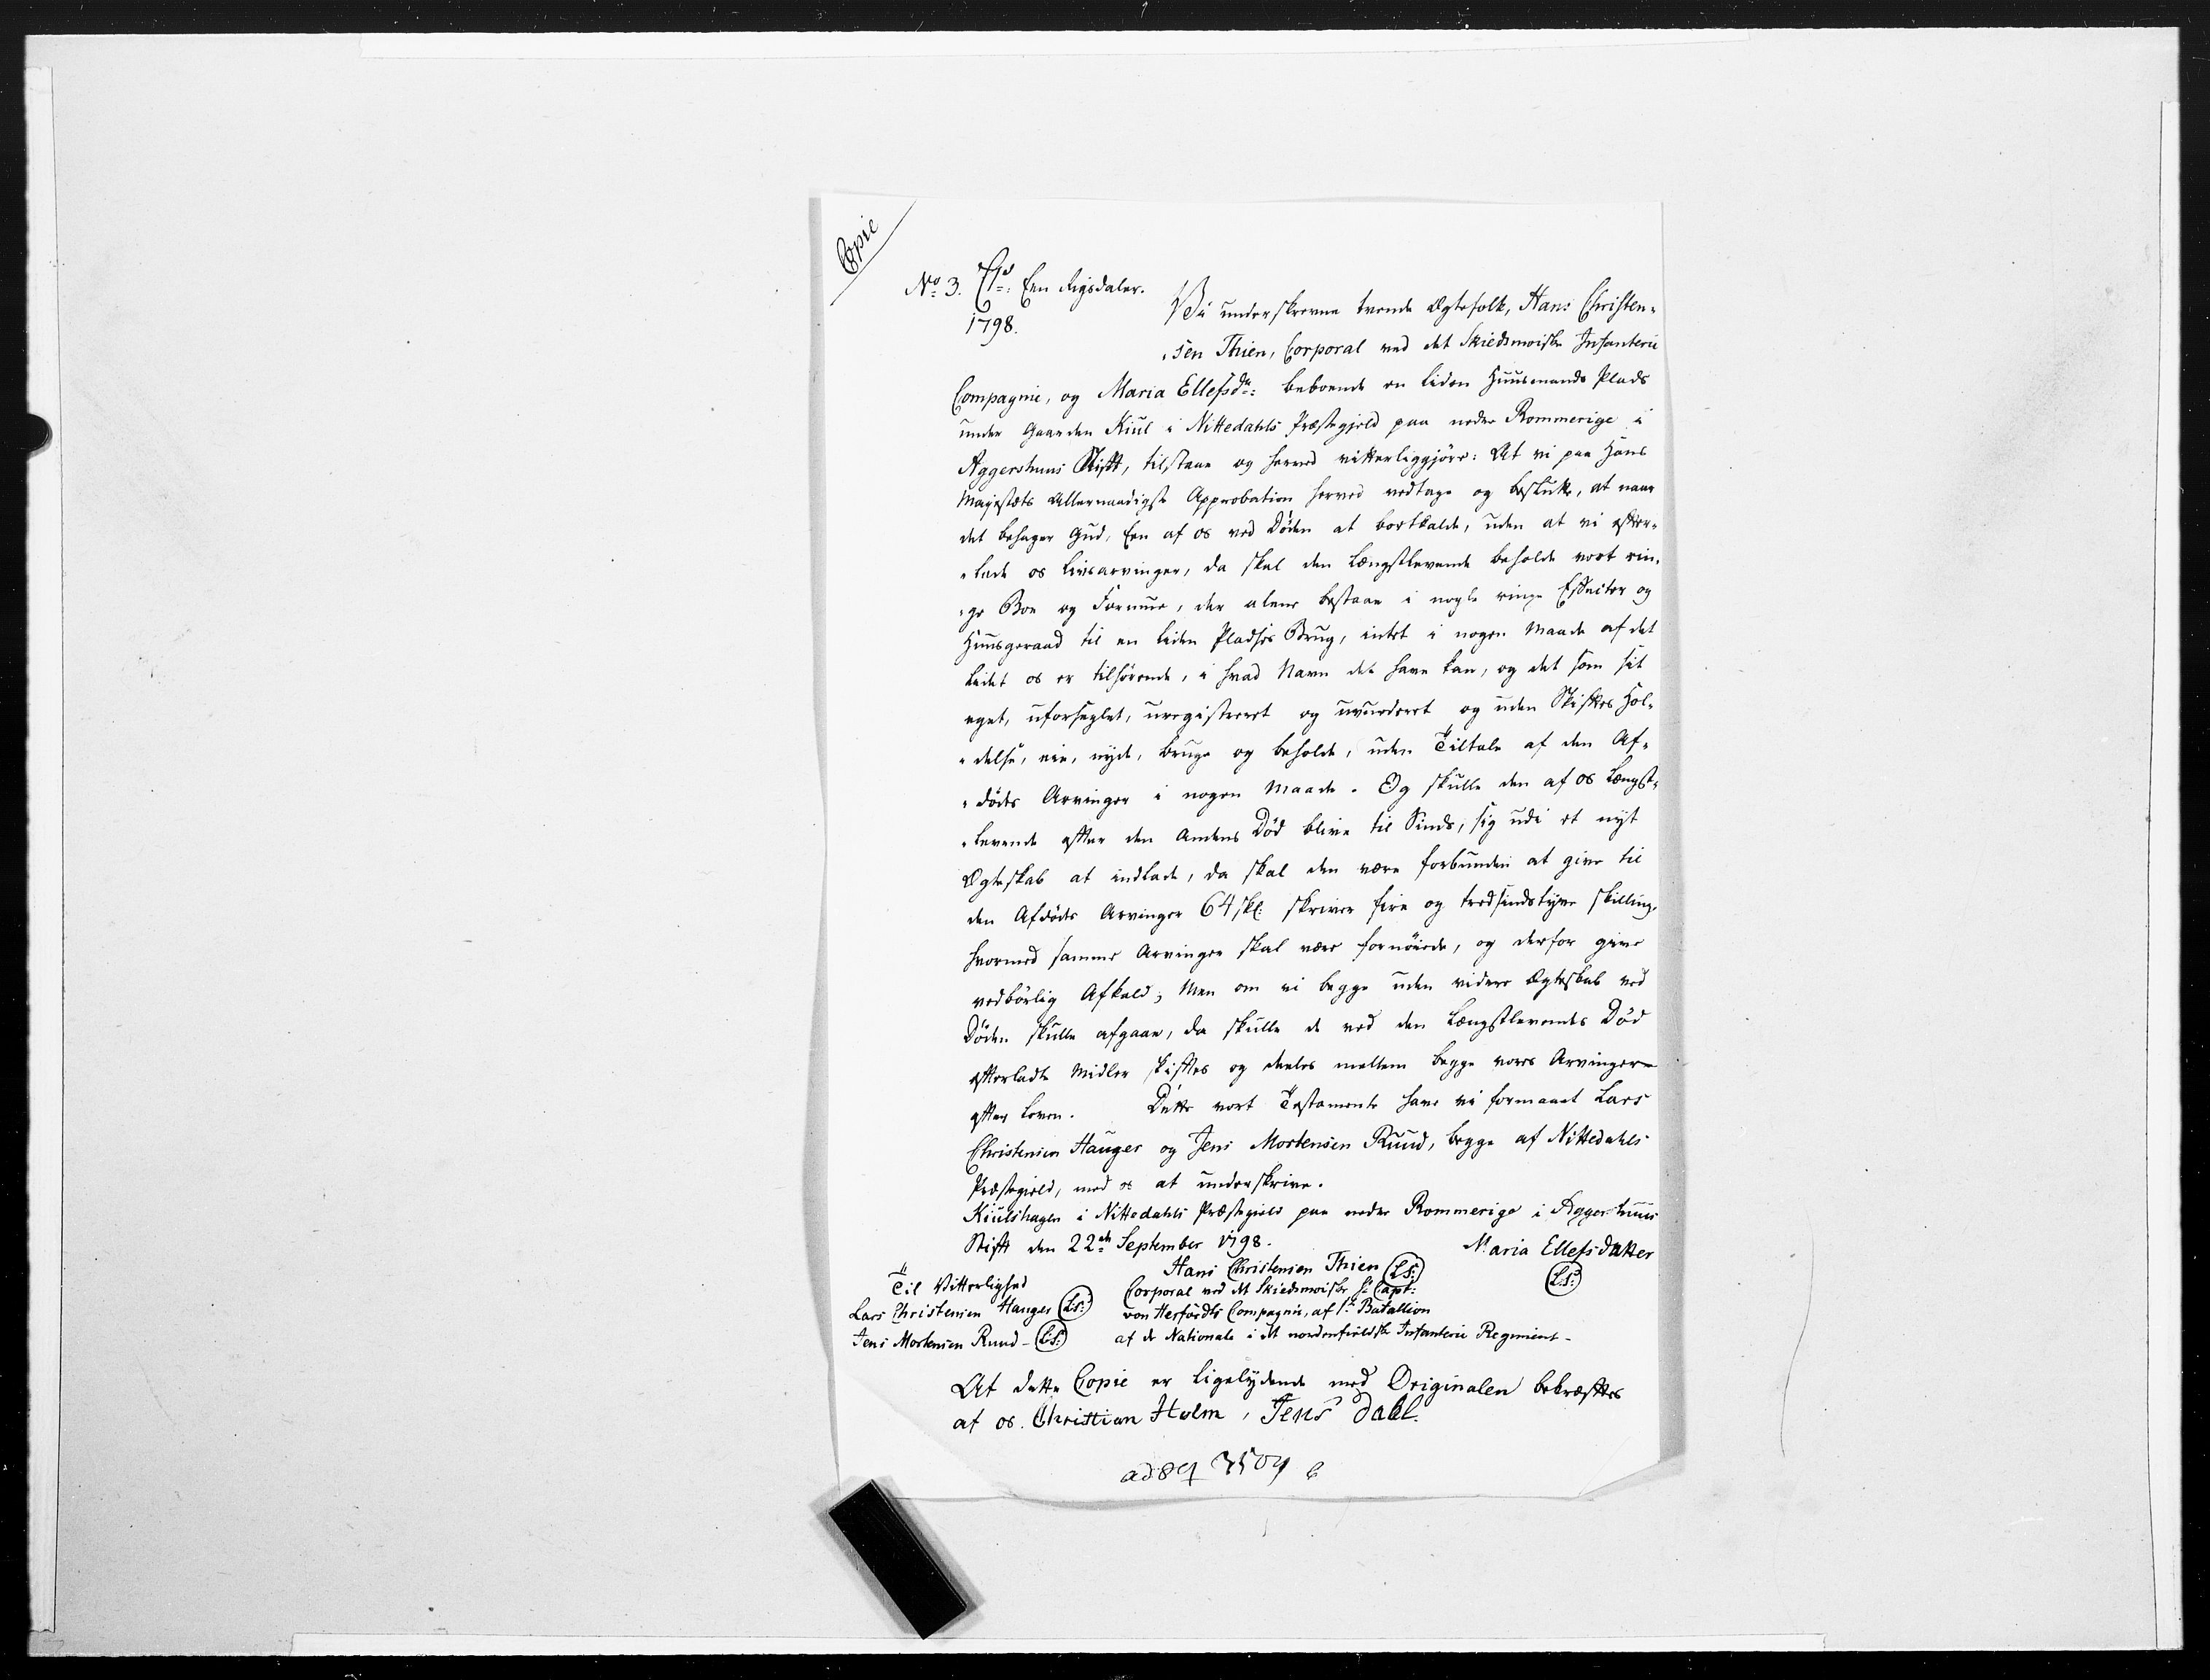 Copie
No 3. Cl. 1d: Een Rigsdaler.
1798.
Vi underskrevne tvende Ægtefolk, Hans Christen-
-sen Thien, Corporal ved det Skiedsmoiske Infanterie
Compagnie, og Maria Ellefsdr: beboende en liden Huusmands Plads
under Gaarden Kiul i Nittedahls Præstegjeld paa neder Rommerige i
Aggershuus Stift, tilstaae og herved vitterliggjøre: At vi paa Hans
Majestæts Allernaadigste Approbation herved vedtage og beslutte, at naar
det behager Gud, Een af os ved Døden at bortkalde, uden at vi efter-
-lade os Livsarvinger, da skal den Længstlevende beholde vort rin-
-ge Boe og Formue, der alene bestaae i nogle ringe Effecter og
Huusgeraad til en liden Pladses Brug, intet i nogen Maade af det
Lidet os er tilhørende, i hvad Navn det have kan, og det som sit
eget, uforseglet, uregistreret og uvurderet og uden Skiftes Hol-
-delse, eie, nyde, bruge og beholde, uden Tiltale af den Af-
-dødes Arvinger i nogen Maade. Og skulle den af os Længst-
-levende efter den Andens Død blive til Sinds, sig udi et nyt
Ægteskab at indlade, da skal den være forbunden at give til
den Afdødes Arvinger 64 skl: skriver fire og tredsindstyve skilling,
hvormed samme Arvinger skal være fornøiede, og derfor give
vedbørlig Afkald; Men om vi begge uden videre Ægteskab ved
Døden skulle afgaae, da skulle de ved den Længstlevendes Død
efterladte Midler skiftes og deeles mellem begge vores Arvinger
efter Loven. Dette vort Testamente have vi formaaet Lars
Christensen Hauger og Jens Mortensen Ruud, begge af Nittedahls
Præstegield, med os at underskrive.
Kiulshagen i Nittedahls Præstegield paa neder Rommerige i Aggershuus
Stift den 22de September 1798.
Maria Ellefsdatter
Hans Christensen Thien (L.S:)
(L.S:)
Til Vitterlighed
Corporal ved det Skiedsmoiske, Hr Capt:
Lars Christensen Hauger (L.S:)
von Herfordts Compagnie, af 1te Batallion
Jens Mortensen Ruud - (L.S:)
af de Nationale i det nordenfieldske Infanterie Regiment -
At dette Copie er ligelydende med Originalen bekræftes
af os. Christian Holm, Jens Dahl.